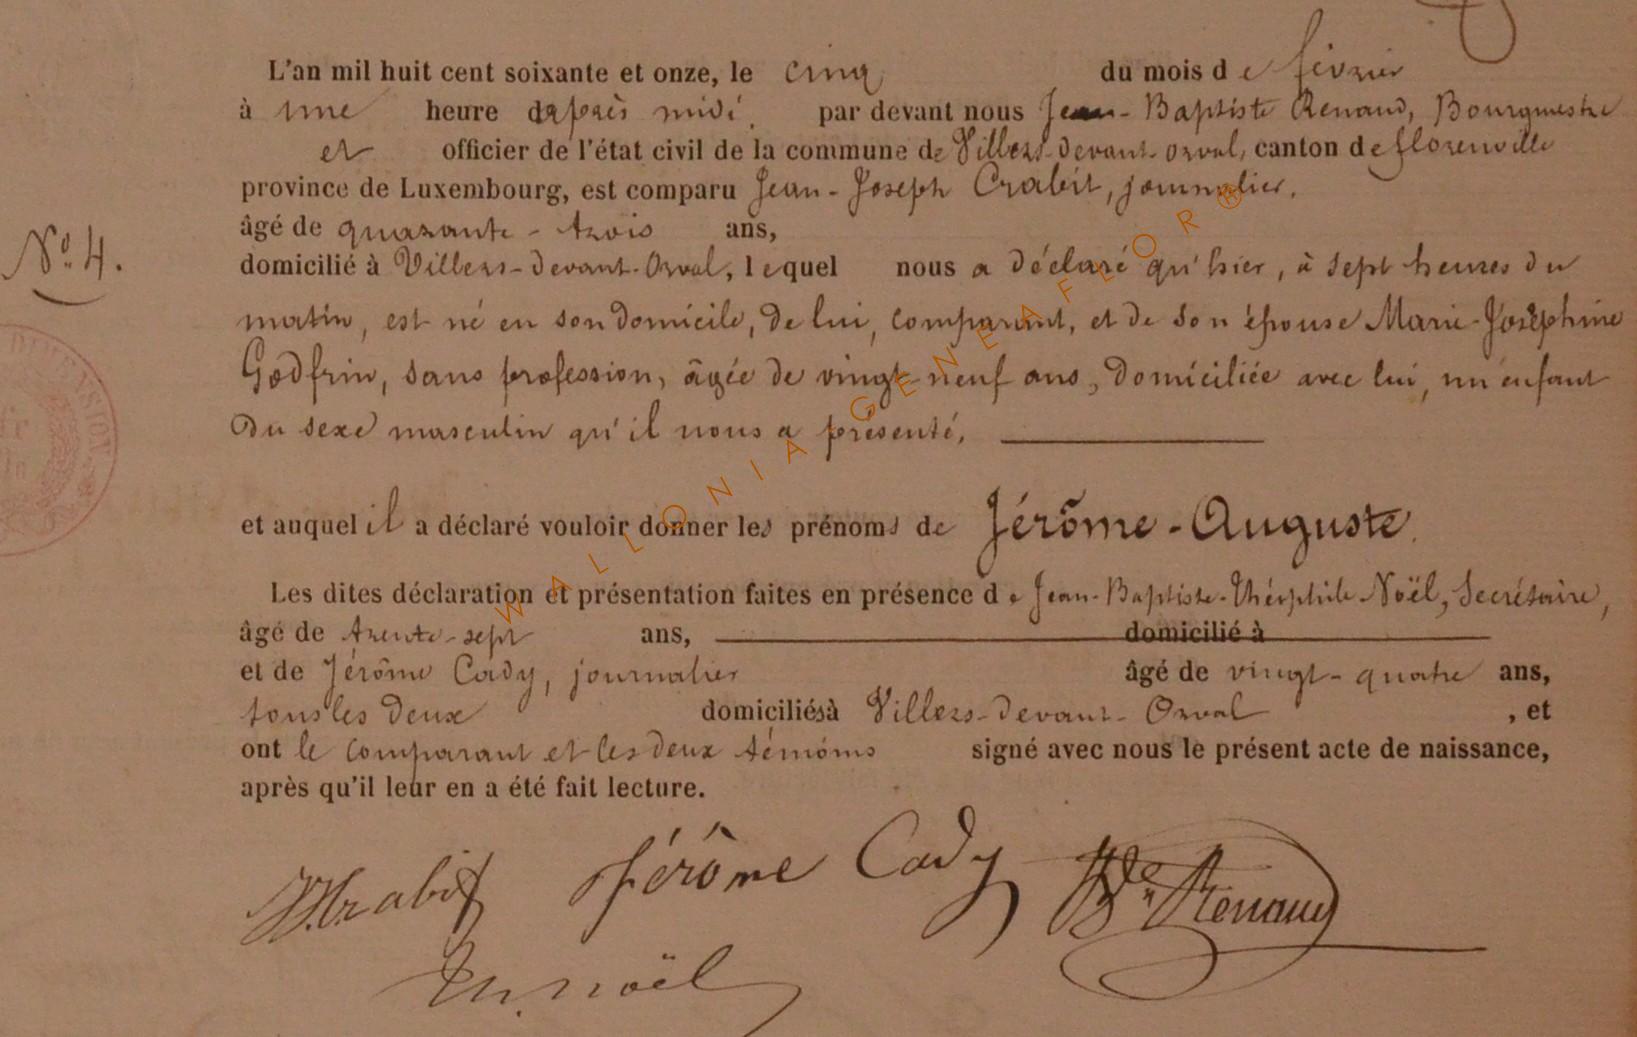 L'an mil huit cent soixante et onze, le cinq du mois de février
à une heure d'après midi, par devant nous Jean-Baptiste Renaud, Bourgmestre
et officier de l'état civil de la commune de Villers-devant-orval, canton de florenville
province de Luxembourg, est comparu Jean-Joseph Crabit, journalier,
âgé de quarante-trois ans,
N° 4.
domicilié à Villers-devant-Orval, lequel nous a déclaré qu'hier, à sept heures du
matin, est né en son domicile, de lui, comparant, et de son épouse Marie-Joséphine
Godfrin, sans profession, âgée de vingt-neuf ans, domiciliée avec lui, un enfant
du sexe masculin qu'il nous a présenté,
et auquel il a déclaré vouloir donner les prénoms de Jérôme-Auguste.
Les dites déclaration et présentation faites en présence de Jean-Baptiste-Théophile Noël, Secrétaire,
âgé de trente-sept ans, domicilié à
et de Jérôme Cady, journalier âgé de vingt-quatre ans,
tous les deux domiciliés à Villers-devant-Orval, et
ont le comparant et les deux témoins signé avec nous le présent acte de naissance,
après qu'il leur en a été fait lecture.
Jérôme Cady Renaud
Th. Noël
WALLONIA GENEAFLOR®